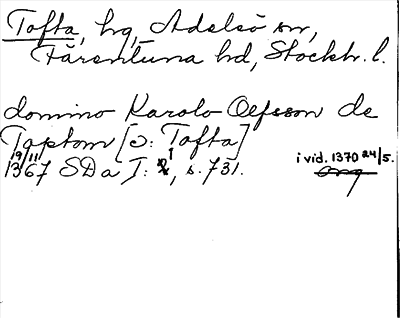 Tofta, hg, Adelsö sn,
Färentuna hd, Stockh. l.
domino Karolo Oefsson de
Toptom [ɔ: Tofta]
19/11 1367 SDa I: 1, s. 731.
i vid. 1370 24/5.
orig